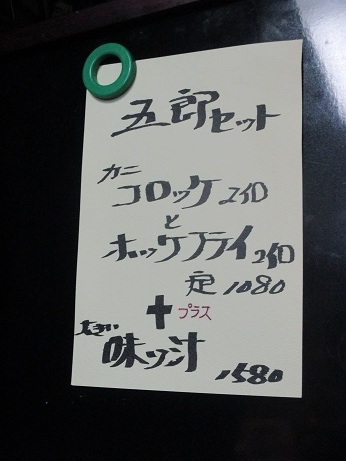 五郎セット
カニ
コロッケ2イロ
と
ホッケフライ2イロ
定 1080
+プラス
大きい
味ソ汁
1580